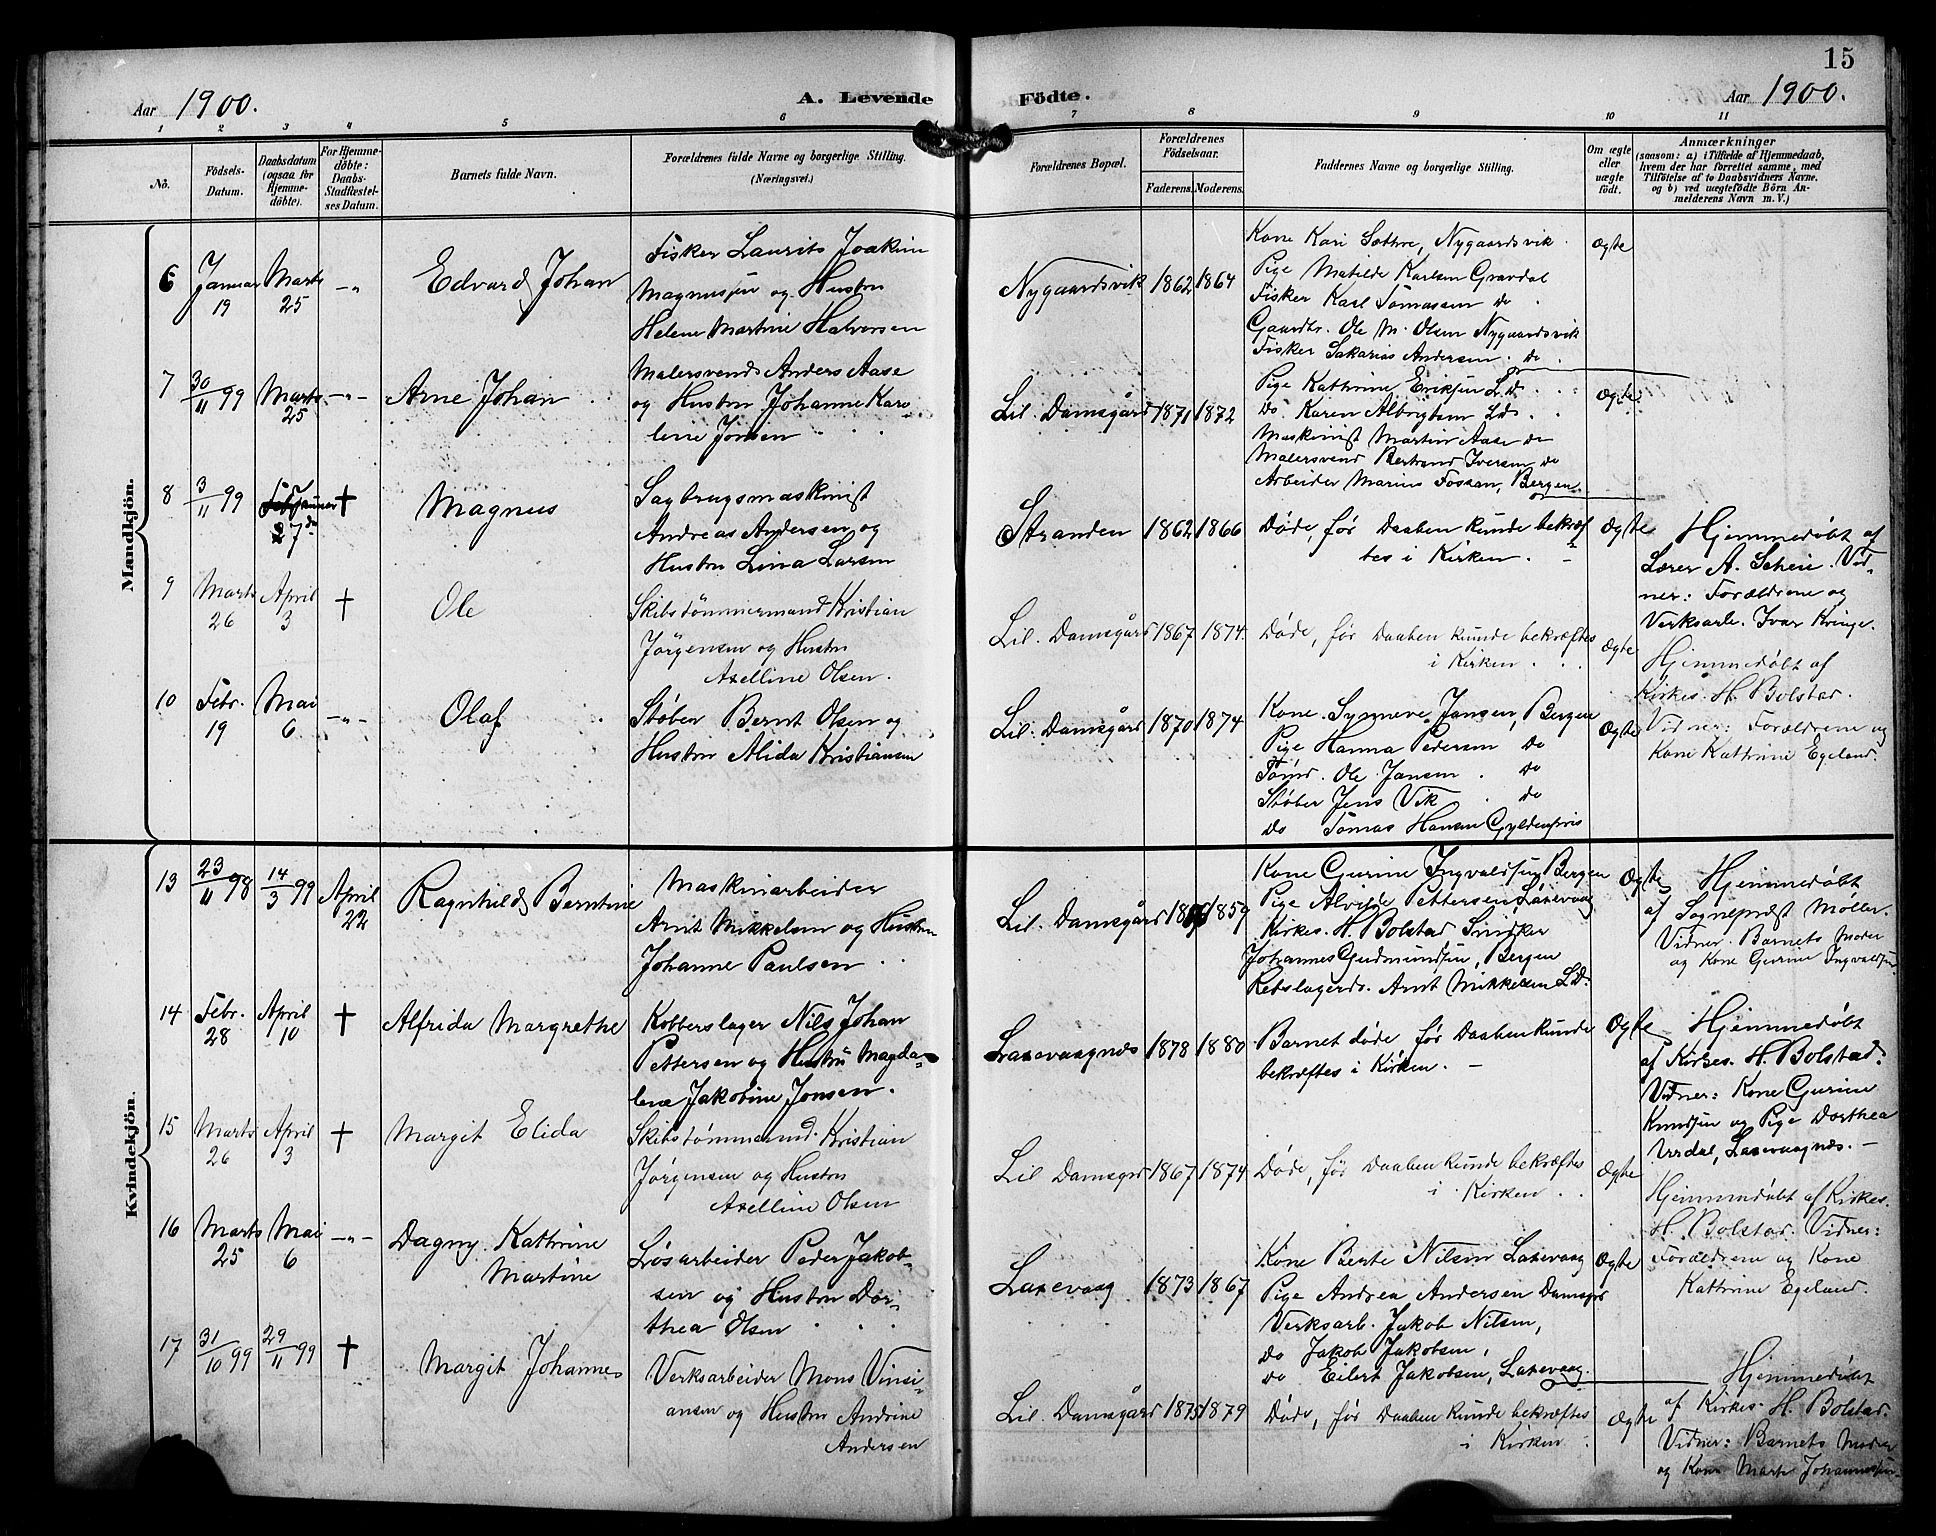 15
Aar 1900.
A. Levende Födte.
Aar 1900.
1 2 3 4 5 6 7 8 9 10 11
No.
Födsels-Datum.
Daabsdatum (ogsaa for Hjemme-döbte).
For Hjemme-döbte: Daabs-Stadfæstel-ses Datum.
Barnets fulde Navn.
Forældrenes fulde Navne og borgerlige Stilling. (Næringsvei.)
Forældrenes Bopæl.
Forældrenes Födselsaar.
Faderens. Moderens.
Faddernes Navne og borgerlige Stilling.
Om ægte eller uægte födt.
Anmærkninger
(saasom: a) i Tilfælde af Hjemmedaab, hvem der har forrettet samme, med Tilföielse af to Daabsvidners Navne. og b) ved uægtefödte Börn Anmelderens Navn m. V.)
Mandkjön.
6 Januar 19 Marts 25 -"- Edvard Johan
Fisker Laurits Joakim
Magnussen og Hustru
Helene Martine Halvorsen
Nygaardsvik 1862 1864
Kone Kari Sæthre, Nygaardsvik
Pige Matilde Karlsen Gravdal
Fisker Karl Tomassen do
Gaardbr. Ole M. Olsen Nygaardsvik
Fisker Sakarias Andersen do.
Ægte
7 30/11 99 Marts 25 -"- Arne Johan
Malersvend Anders Aase
og Hustru Johanne Karo-
line Jonsen
Lil. Damsgård 1871 1872
Pige Kathrine Eriksen L.d.
Do Karen Albrigtsen L.d.
Maskinist Martin Aase do
Malersvend Bertrand Iversen do
Arbeider Marius Fossan, Bergen
Ægte
8 3/11 99 Januar 7de † Magnus
Sagbrugsmaskinist
Andreas Andersen og
Hustru Lina Larsen
Stranden 1862 1866
Døde, før Daaben kunde bekræf-
tes i Kirken.
Ægte
Hjemmedøbt af
Lærer A. Scheie. Vid-
ner: Forældrene og
Verksarb. Ivar Kringe.
9 Marts 26 April 3 † Ole
Skibstømmermand Kristian
Jørgensen og Hustru
Axelline Olsen.
Lil. Damsgård 1867 1874.
Døde, før Daaben kunde bekræftes
i Kirken
Ægte
Hjemmedøbt af
Kirkes. H. Bolstad.
Vidner: Forældrene og
Kone Kathrine Egeland.
10 Febr. 19 Mai 6 -"- Olaf
Støber Bernt Olsen og
Hustru Alida Kristiansen
Lil. Damsgård 1870 1874
Kone Synneve Jansen, Bergen
Pige Hanna Pedersen do
Tømd. Ole Jansen do
Støber Jens Vik do
do Tomas Hansen Gyldenpris
Ægte
Kvindekjön.
13 23/11 98 14/3 99 April 22 Ragnhild Berntine
Maskinarbeider
Arnt Mikkelsen og Hustru
Johanne Paulsen
Lil. Damsgård 1859
Kone Gurine Ingvaldsen Bergen
Pige Alvilde Pettersen Laxevaag
Kirkes. H. Bolstad Snidker
Johannes Gudmundsen, Bergen
Rebslagerds. Arnt Mikkelsen L.D.
Ægte
Hjemmedøbt
af Sognepræst Møller.
Vidner. Barnets Moder
og Kone Gurine Ingvaldsen
14 Febr. 28 April 10 † Alfrida Margrethe
Kobberslager Nils Johan
Pettersen og Hustru Magda-
lene Jakobine Jonsen.
Laxevaagnæs 1878 1880
Barnet døde før Daaben kunde
bekræftes i Kirken.
Ægte
Hjemmedøbt
af Kirkes. H. Bolstad.
Vidner: Kone Gurine
Knudsen og Pige Dorthea
Urdal, Laxevaagnæs.
15 Marts 26 April 3 † Margit Elida
Skibstømmermd. Kristian
Jørgensen og Hustru
Axelline Olsen
Lil Damsgrd 1867 1874
Døde, før Daaben kunde bekræftes
i Kirken
Ægte
Hjemmedøbt af Kirkes.
H. Bolstad. Vidner:
Forældrene og Kone
Kathrine Egeland.
16 Marts 25 Mai 6 -"- Dagny Kathrine
Martine
Løsarbeider Peder Jakob-
sen og Hustru Dor-
thea Olsen
Laxevaag 1873 1867
Kone Berte Nilsen Laxevaag
Pige Andrea Andersen Damsgrd
Verksarb. Jakob Nilsen,
do Jakob Jakobsen,
do Eilert Jakobsen, Laxevaag.
Ægte
17 31/10 99 29/11 99 † Margit Johannes
Verksarbeider Mons Vinsi-
ansen og Hustru Andrine
Andersen
Lil. Damsgård 1875 1879
Døde, før Daaben kunde bekræftes
i Kirken
Ægte
Hjemmedøbt
af Kirkes. H. Bolstad.
Vidner: Barnets Moder
og Kone Marte Johannessen